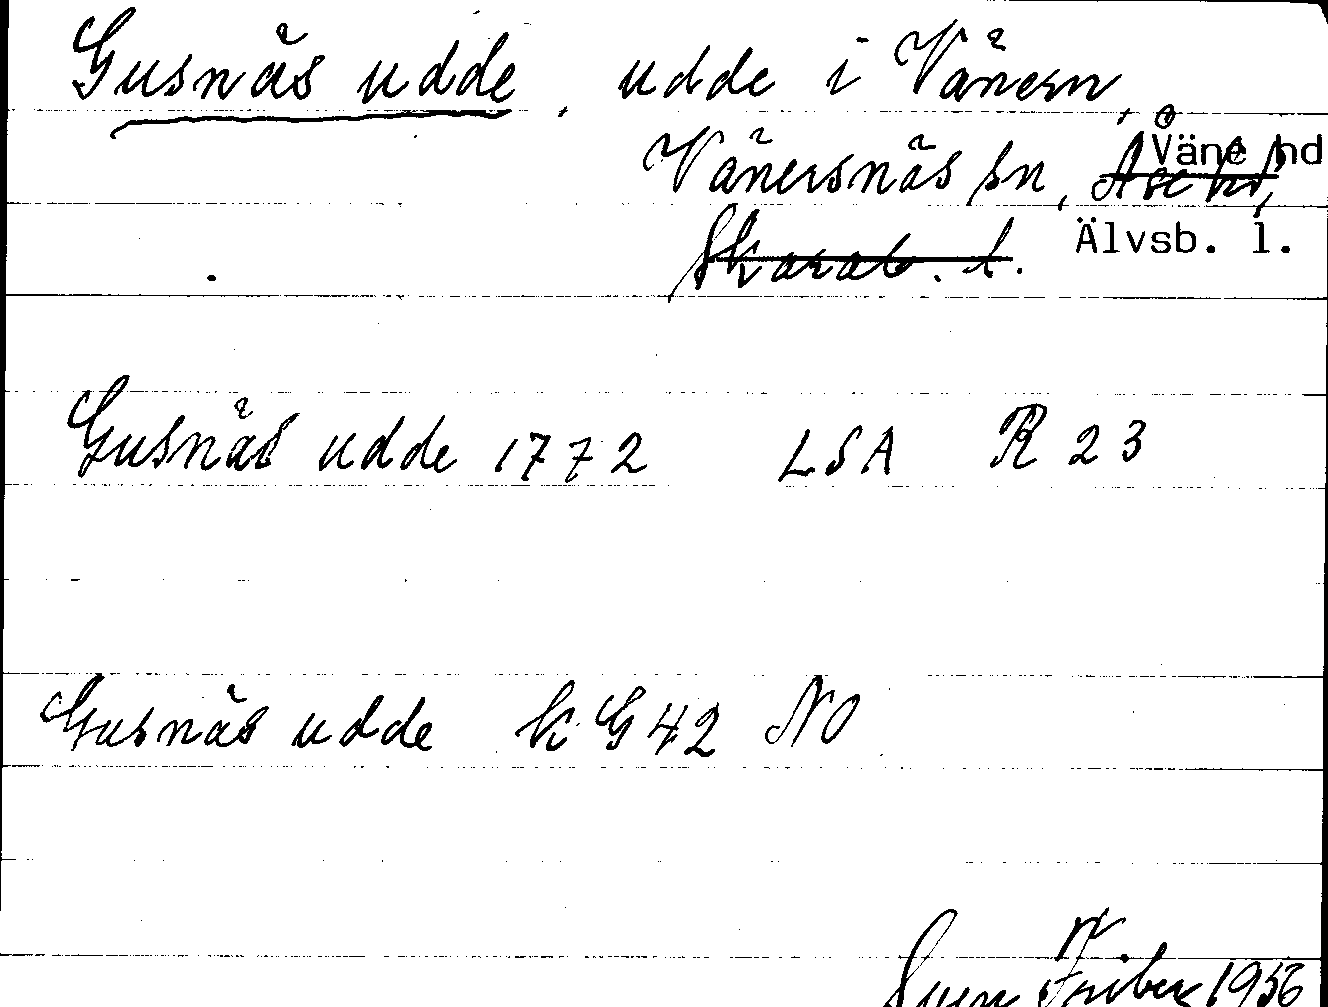 Gusnäs udde, udde i Vänern,
Vänersnäs sn, Åse hd, Väne hd
Skarab. l. Älvsb. l.
Gusnäs udde 1772 LSA R 23
Gusnäs udde k G 42 NO
Sven 1956